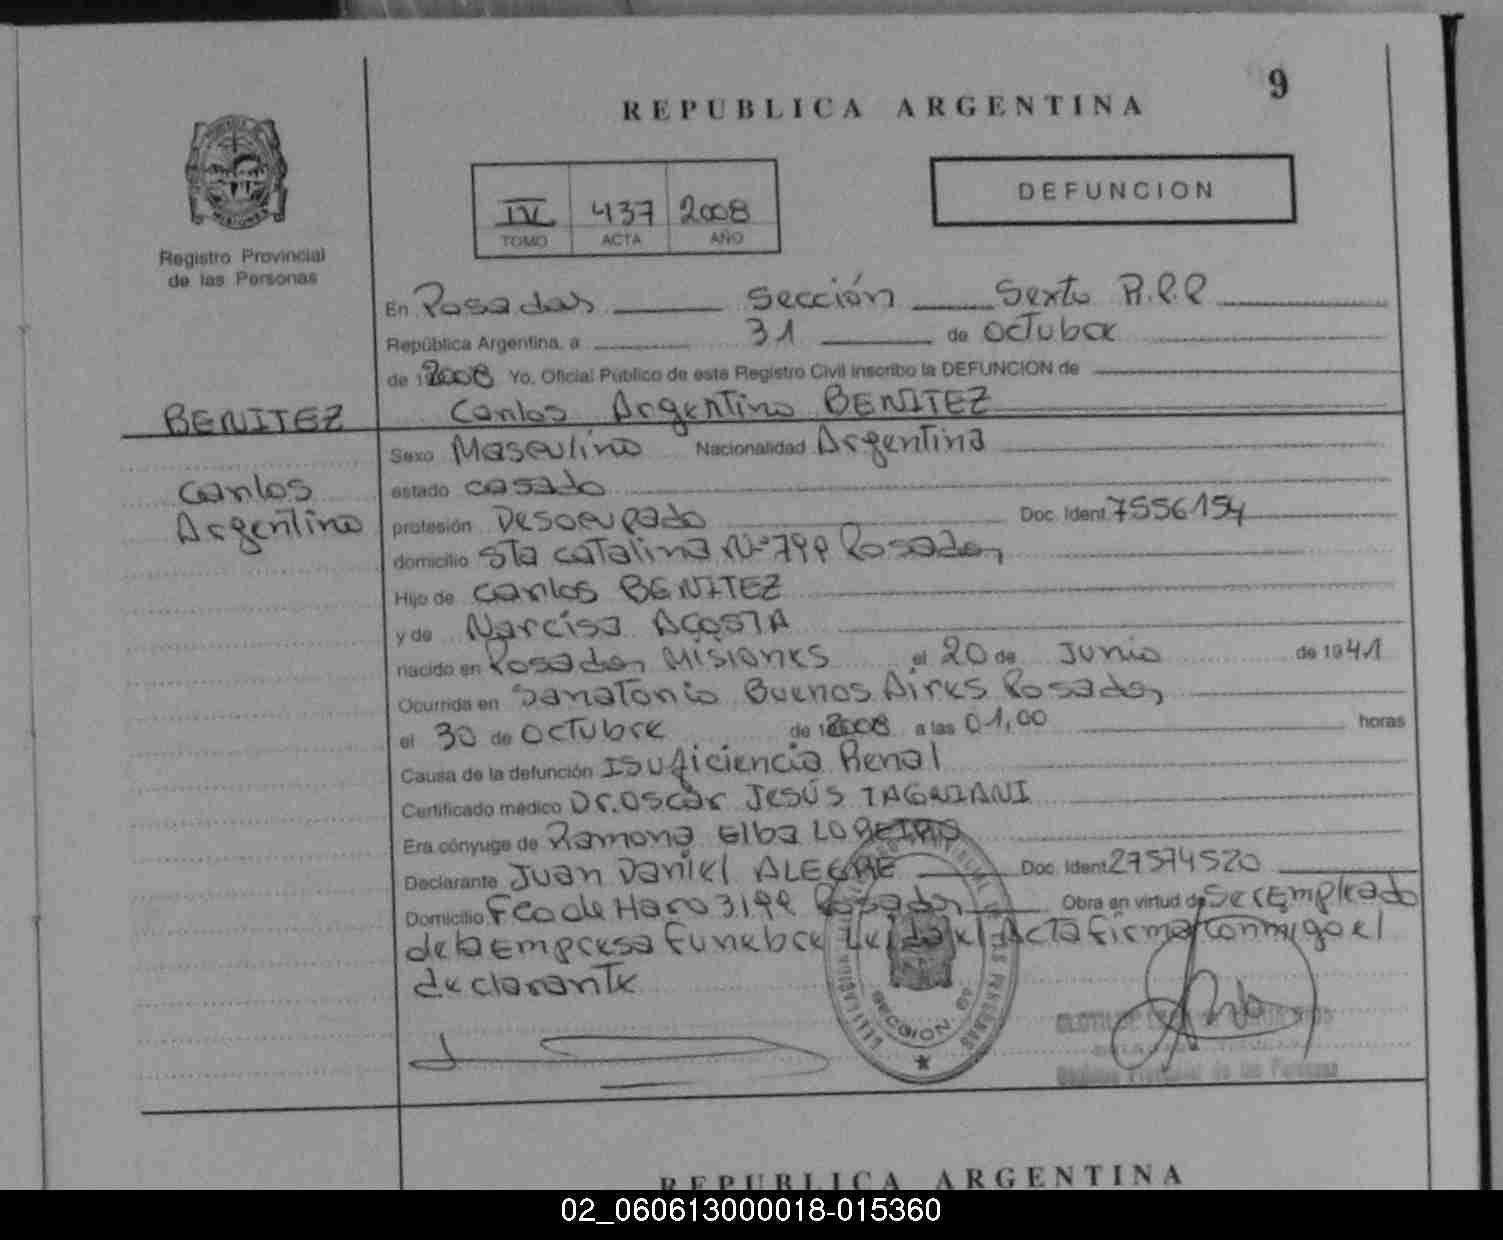 9
REPUBLICA ARGENTINA
IV 437 2008
TOMO ACTA AÑO
DEFUNCION
Registro Provincial
de las Personas
En Posadas Sección Sexto R.P.P
República Argentina, a 31 de octubre
de 12008 Yo, Oficial Público de este Registro Civil inscribo la DEFUNCION de
BENITEZ Carlos Argentino BENITEZ
Sexo Masculino Nacionalidad Argentina
Carlos estado casado
Argentino profesión Desocupado Doc. Ident. 7556154
domicilio Sta catalina Nº 799 Posadas
Hijo de Carlos BENITEZ
y de Narcisa ACOSTA
nacido en Posadas Misiones el 20 de Junio de 1941
Ocurrida en Sanatorio Buenos Aires Posadas
el 30 de octubre de 12008 a las 01,00 horas
Causa de la defunción Isuficiencia Renal
Certificado médico Dr. Oscar Jesús
Era cónyuge de Ramona Elba
Declarante Juan Daniel ALEGRE Doc. Ident. 27574520
Domicilio Fco de Haro 3199 Posadas Obra en virtud de Ser Empleado
de la Empresa Funebre Leida el Acta firma conmigo el
declarante
SECCION 6ª
REPUBLICA ARGENTINA
02_060613000018-015360